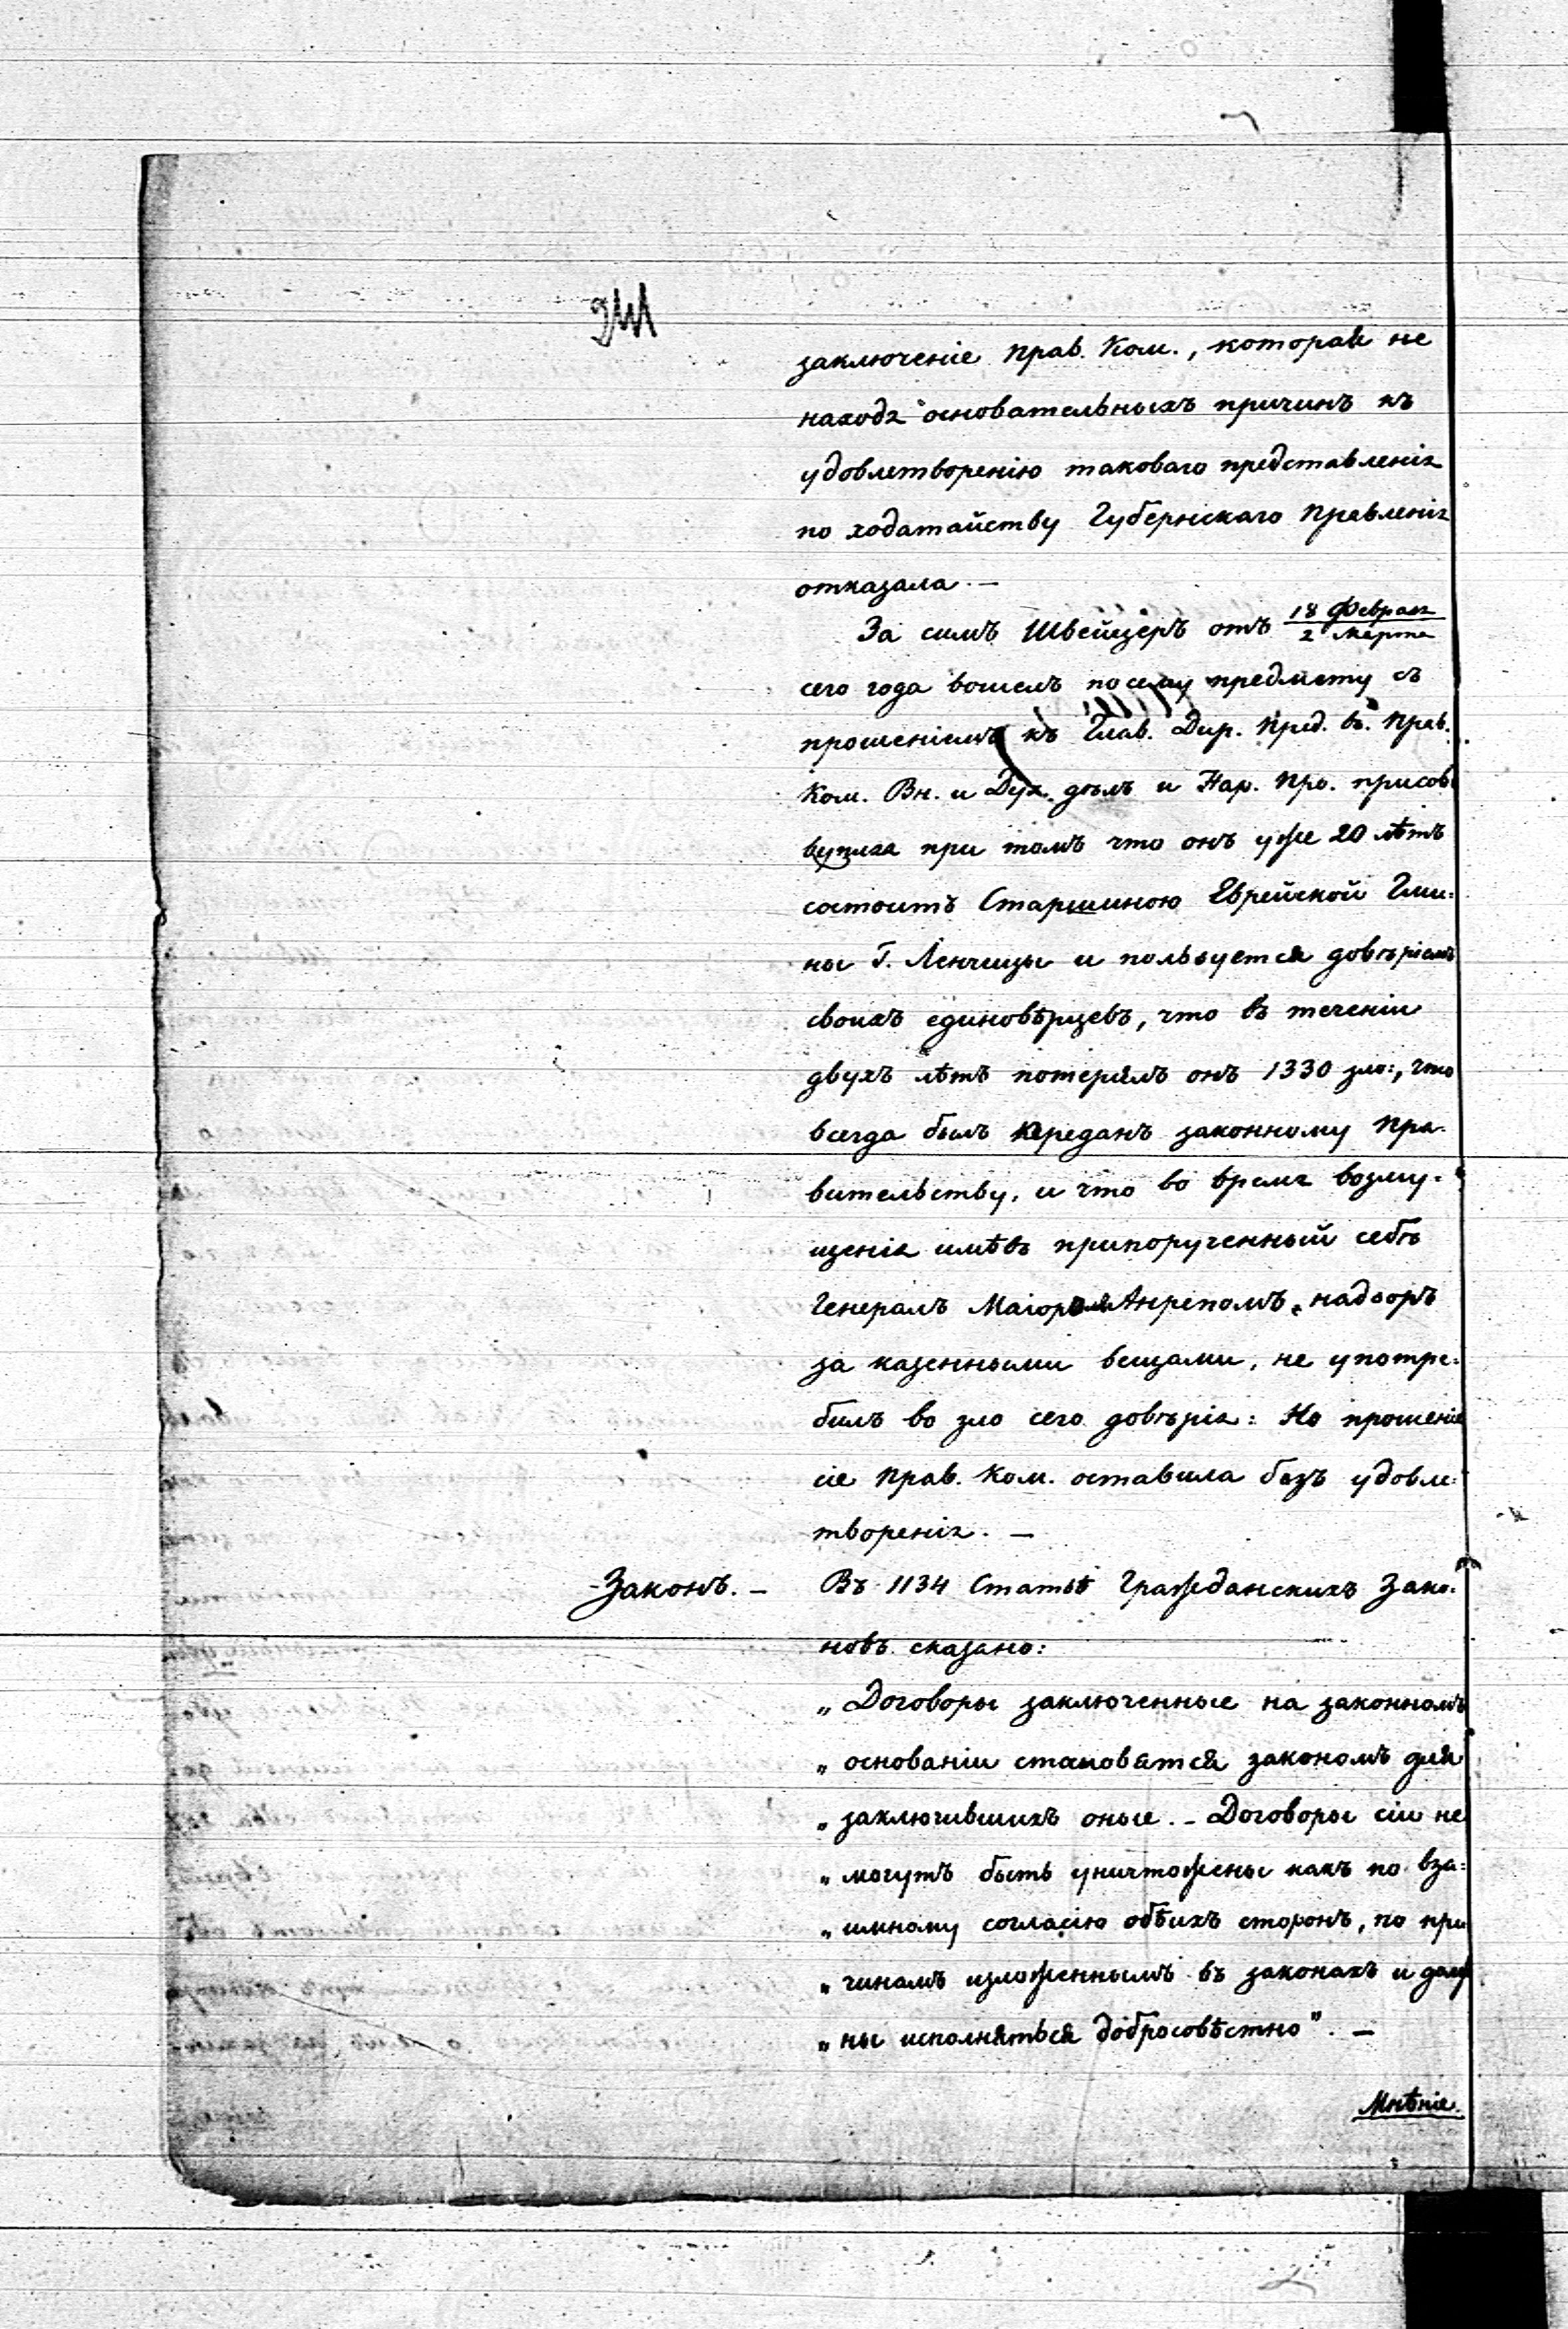 заключеніе Прав. Ком., которая не
находя основательныхъ причинъ къ
удовлетворенію таковаго представленія
по ходатайству Губернскаго Правленія
отказала. —
За симъ Швейцеръ отъ 18 Февраля / 2 Марта
сего года вошелъ по сему предмету съ
прошеніемъ къ Глав. Дир. Пред. въ Прав.
Ком. Вн. и Дух. дѣлъ и Нар. Про. присов
купляя при томъ что онъ уже 20 лѣтъ
состоитъ Старшиною Еврейской Гми:
ны Г. Ленчицы и пользуется довѣріемъ
своихъ единовѣрцевъ, что въ теченіи
двухъ лѣтъ потерялъ онъ 1330 зло:, что
всегда былъ преданъ законному Пра-
вительству, и что во время возму-
щенія имѣвъ припорученный себѣ
Генералъ Маіоромъ Анрепомъ, надзоръ
за казенными вещами, не употре:
билъ во зло сего довѣрія: Но прошеніе
сіе Прав. Ком. оставила безъ удовле:
творенія. —
Законъ. — Въ 1134 Статьѣ Гражданскихъ Зако:
новъ сказано:
„ Договоры заключенные на законномъ
„ основаніи становятся закономъ для
„ заключившихъ оные. — Договоры сіи не
„ могутъ быть уничтожены какъ по вза:
„ имному согласію обѣихъ сторонъ, по при
„ чинамъ изложеннымъ въ законахъ и долж
„ ны исполняться добросовѣстно". —
Мнѣніе.